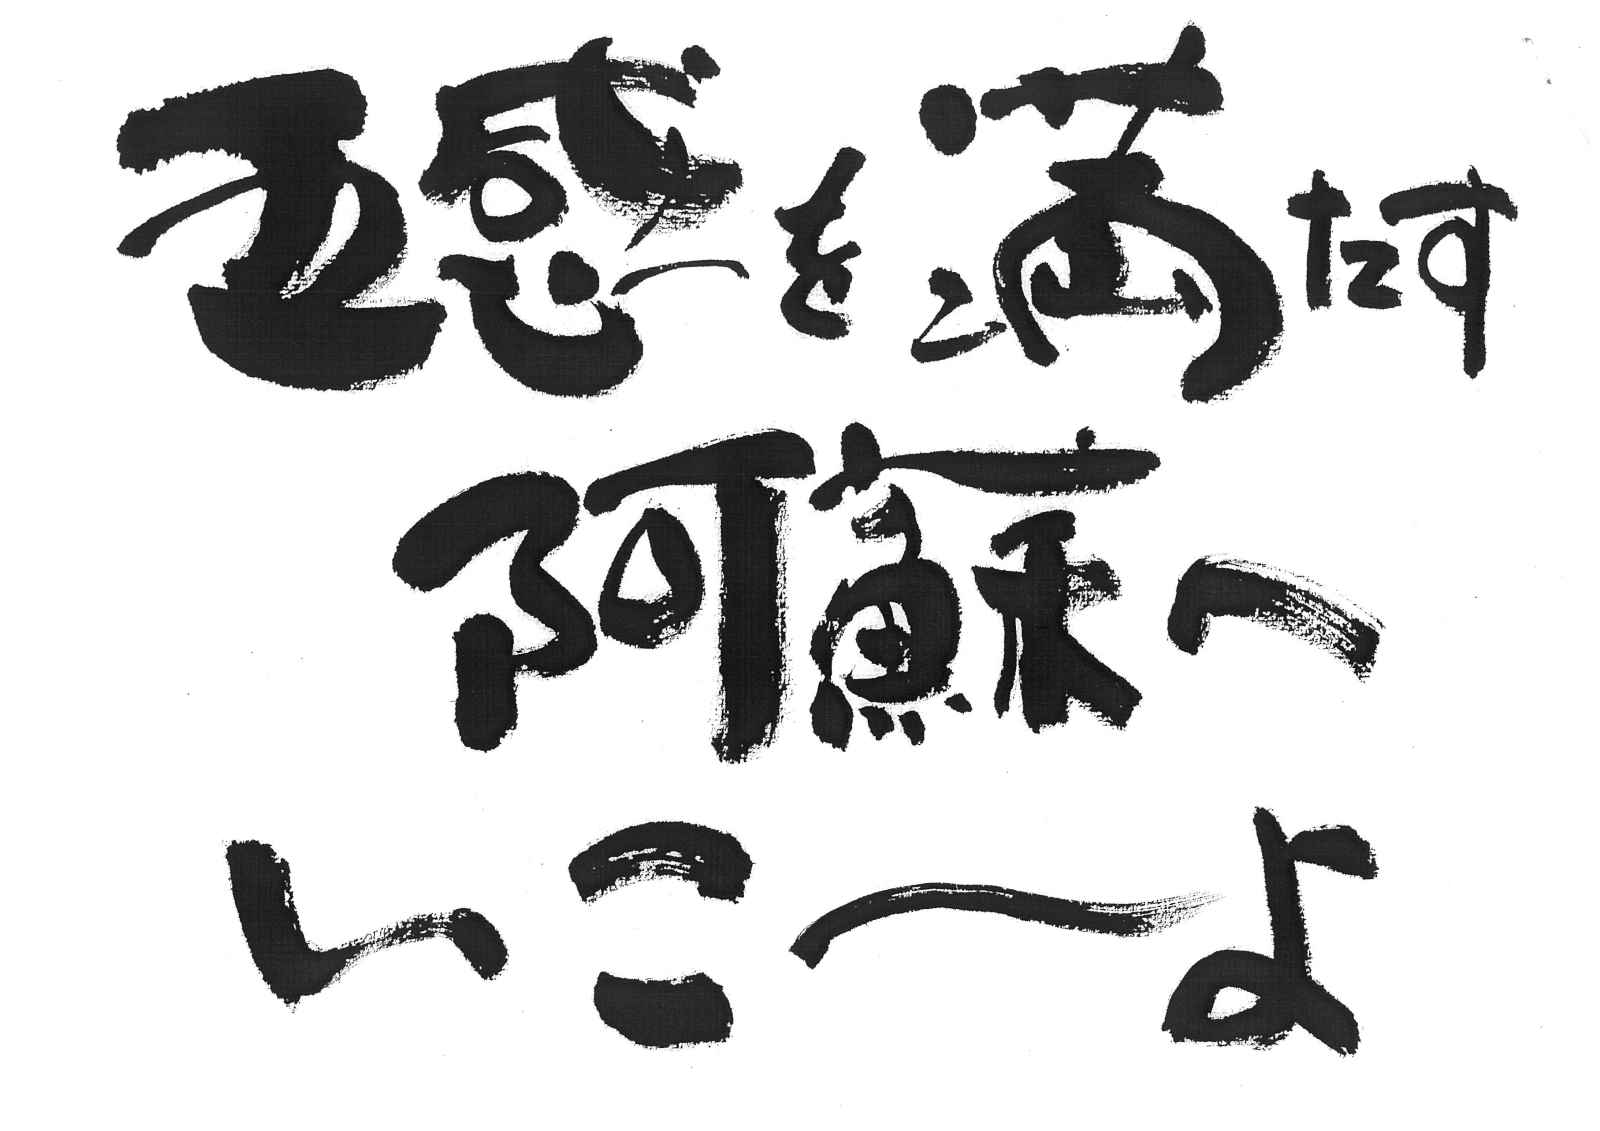 五感を満たす
阿蘇へ
いこーよ